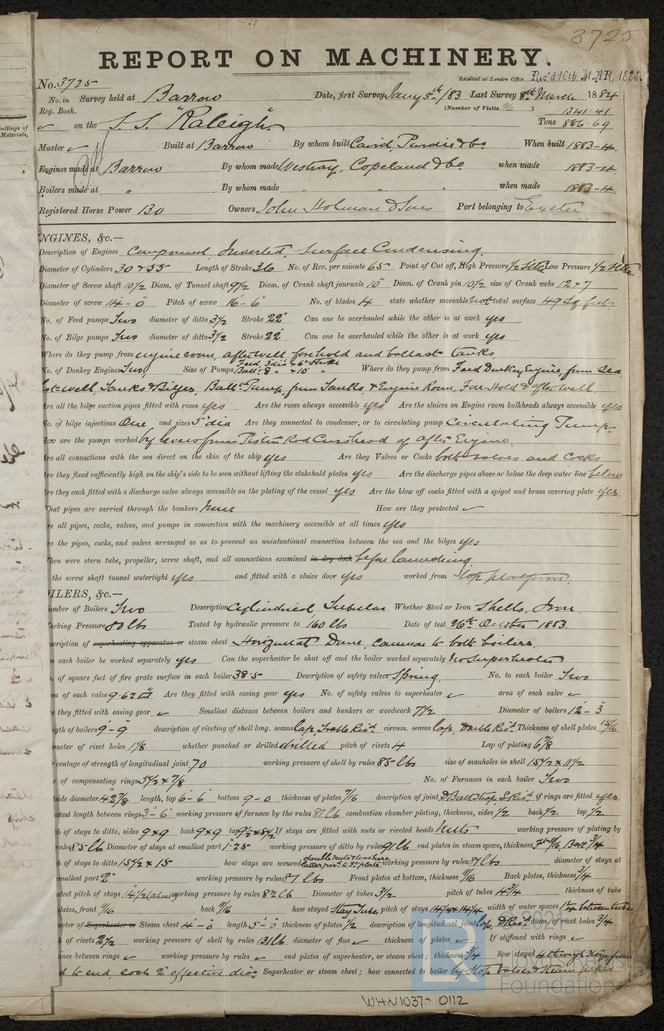 3725
REPORT ON MACHINERY.
No. 3725
Received at London Office Rec'd 10th MAR, 1884
No. in Survey held at Barrow Date, first Survey Jany 3rd /83 Last Survey 8th March 1884
Reg. Book. (Number of Visits
on the S.S. "Raleigh" Tons 1341.41 886.69
Master Built at Barrow By whom built Caird Purdie & Co When built 1883-4
Engines made at Barrow By whom made Westray, Copeland & Co when made 1883-4
Boilers made at " By whom made " when made 1883-4
Registered Horse Power 130 Owners John Holman & Sons Port belonging to Exeter
NGINES, &c.—
Description of Engines Compound Inverted, Surface Condensing.
Diameter of Cylinders 30 & 55 Length of Stroke 36 No. of Rev. per minute 65 Point of Cut off, High Pressure 1/2 Stke Low Pressure 1/2 Stke
Diameter of Screw shaft 10 1/2 Diam. of Tunnel shaft 9 1/2 Diam. of Crank shaft journals 10 Diam. of Crank pin 10 1/2 size of Crank webs 12 x 7
Diameter of screw 14-0 Pitch of screw 16-6 No. of blades 4 state whether moveable not total surface 49 Sq feet
No. of Feed pumps Two diameter of ditto 3 1/2 Stroke 22" Can one be overhauled while the other is at work yes
No. of Bilge pumps Two diameter of ditto 3 1/2 Stroke 22 Can one be overhauled while the other is at work yes
Where do they pump from engine room, after well forehold and ballast tanks
No. of Donkey Engines Two Size of Pumps Feed 3 dia x 6 Stroke Ball: 8 " x 10 " Where do they pump from Feed Donkey Engine, from Sea
Hotwell, Tanks & Bilges, Ballt Pump, from Tanks & Engine Room, Fore Hold & after well
Are all the bilge suction pipes fitted with roses yes Are the roses always accessible yes Are the sluices on Engine room bulkheads always accessible yes
No. of bilge injections One, and sizes 5" dia Are they connected to condenser, or to circulating pump Circulating Pump.
How are the pumps worked by levers from Piston Rod Crosshead of after Engine.
Are all connections with the sea direct on the skin of the ship yes Are they Valves or Cocks both valves and cocks
Are they fixed sufficiently high on the ship's side to be seen without lifting the stokehold plates yes Are the discharge pipes above or below the deep water line below
Are they each fitted with a discharge valve always accessible on the plating of the vessel yes Are the blow off cocks fitted with a spigot and brass covering plate yes
What pipes are carried through the bunkers None How are they protected
re all pipes, cocks, valves, and pumps in connection with the machinery accessible at all times yes
re the pipes, cocks, and valves arranged so as to prevent an unintentional connection between the sea and the bilges yes
hen were stern tube, propeller, screw shaft, and all connections examined in dry dock before launching
the screw shaft tunnel watertight yes and fitted with a sluice door yes worked from Top platform.
OILERS, &c.—
umber of Boilers Two Description Cylindrical Tubular Whether Steel or Iron Shells, Iron
orking Pressure 80 lbs Tested by hydraulic pressure to 160 lbs Date of test 26th October 1883
scription of superheating apparatus or steam chest Horizontal Dome, common to both boilers.
n each boiler be worked separately yes Can the superheater be shut off and the boiler worked separately No Superheater
o. of square feet of fire grate surface in each boiler 38.5 Description of safety valves Spring No. to each boiler Two
ea of each valve 9.62 Are they fitted with easing gear yes No. of safety valves to superheater area of each valve
they fitted with easing gear Smallest distance between boilers and bunkers or woodwork 7 1/2 Diameter of boilers 12-3
gth of boilers 9-9 description of riveting of shell long. seams Lap, Treble Rivt. circum. seams Lap, Double Rivt. Thickness of shell plates 15/16
meter of rivet holes 1 1/8 whether punched or drilled drilled pitch of rivets 4 Lap of plating 6 7/8
centage of strength of longitudinal joint 70 working pressure of shell by rules 85 lb size of manholes in shell 15 1/2 x 11 1/2
e of compensating rings 5 1/2 x 7/8 No. of Furnaces in each boiler Two
side diameter 42 7/8 length, top 6-6 bottom 9-0 thickness of plates 7/16 description of joint if rings are fitted yes
atest length between rings 3-6 working pressure of furnace by the rules 81 lb combustion chamber plating, thickness, sides 1/2 back 1/2 top 1/2
h of stays to ditto, sides 9x9 back 9x9 top If stays are fitted with nuts or riveted heads Nuts working pressure of plating by
rules 85 lb Diameter of stays at smallest part 1.25 working pressure of ditto by rules 91 lb end plates in steam space, thickness
h of stays to ditto 15 1/2 x 15 how stays are secured double nuts & washers working pressure by rules 81 lbs diameter of stays at
smallest part 2" working pressure by rules 87 lbs Front plates at bottom, thickness 11/16 Back plates, thickness 3/4
atest pitch of stays working pressure by rules 82 lb Diameter of tubes 3 1/2 pitch of tubes 4 3/4 thickness of tube
plates, front 11/16 back 11/16 how stayed Stay Tube pitch of stays width of water spaces
meter of Superheater or Steam chest 4-0 length 5-0 thickness of plates 1/2 description of longitudinal joint Lap, D Rivt. diam. of rivet holes 3/4
h of rivets 2 1/2 working pressure of shell by rules 131 lb diameter of flue thickness of plates If stiffened with rings
ance between rings working pressure by rules end plates of superheater, or steam chest; thickness 3/4 how stayed
to end, each 2" effective dia. Superheater or steam chest; how connected to boiler by Stop valves & steam pipes
LR
2021
Lloyd's Register
Foundation
WHN1037-0112